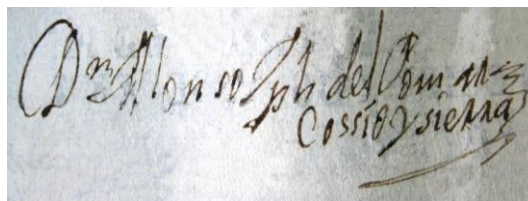 Dn Alonso Jph del Comar
Cossio y sierra